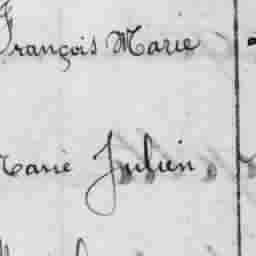 François Marie
Marie Julien